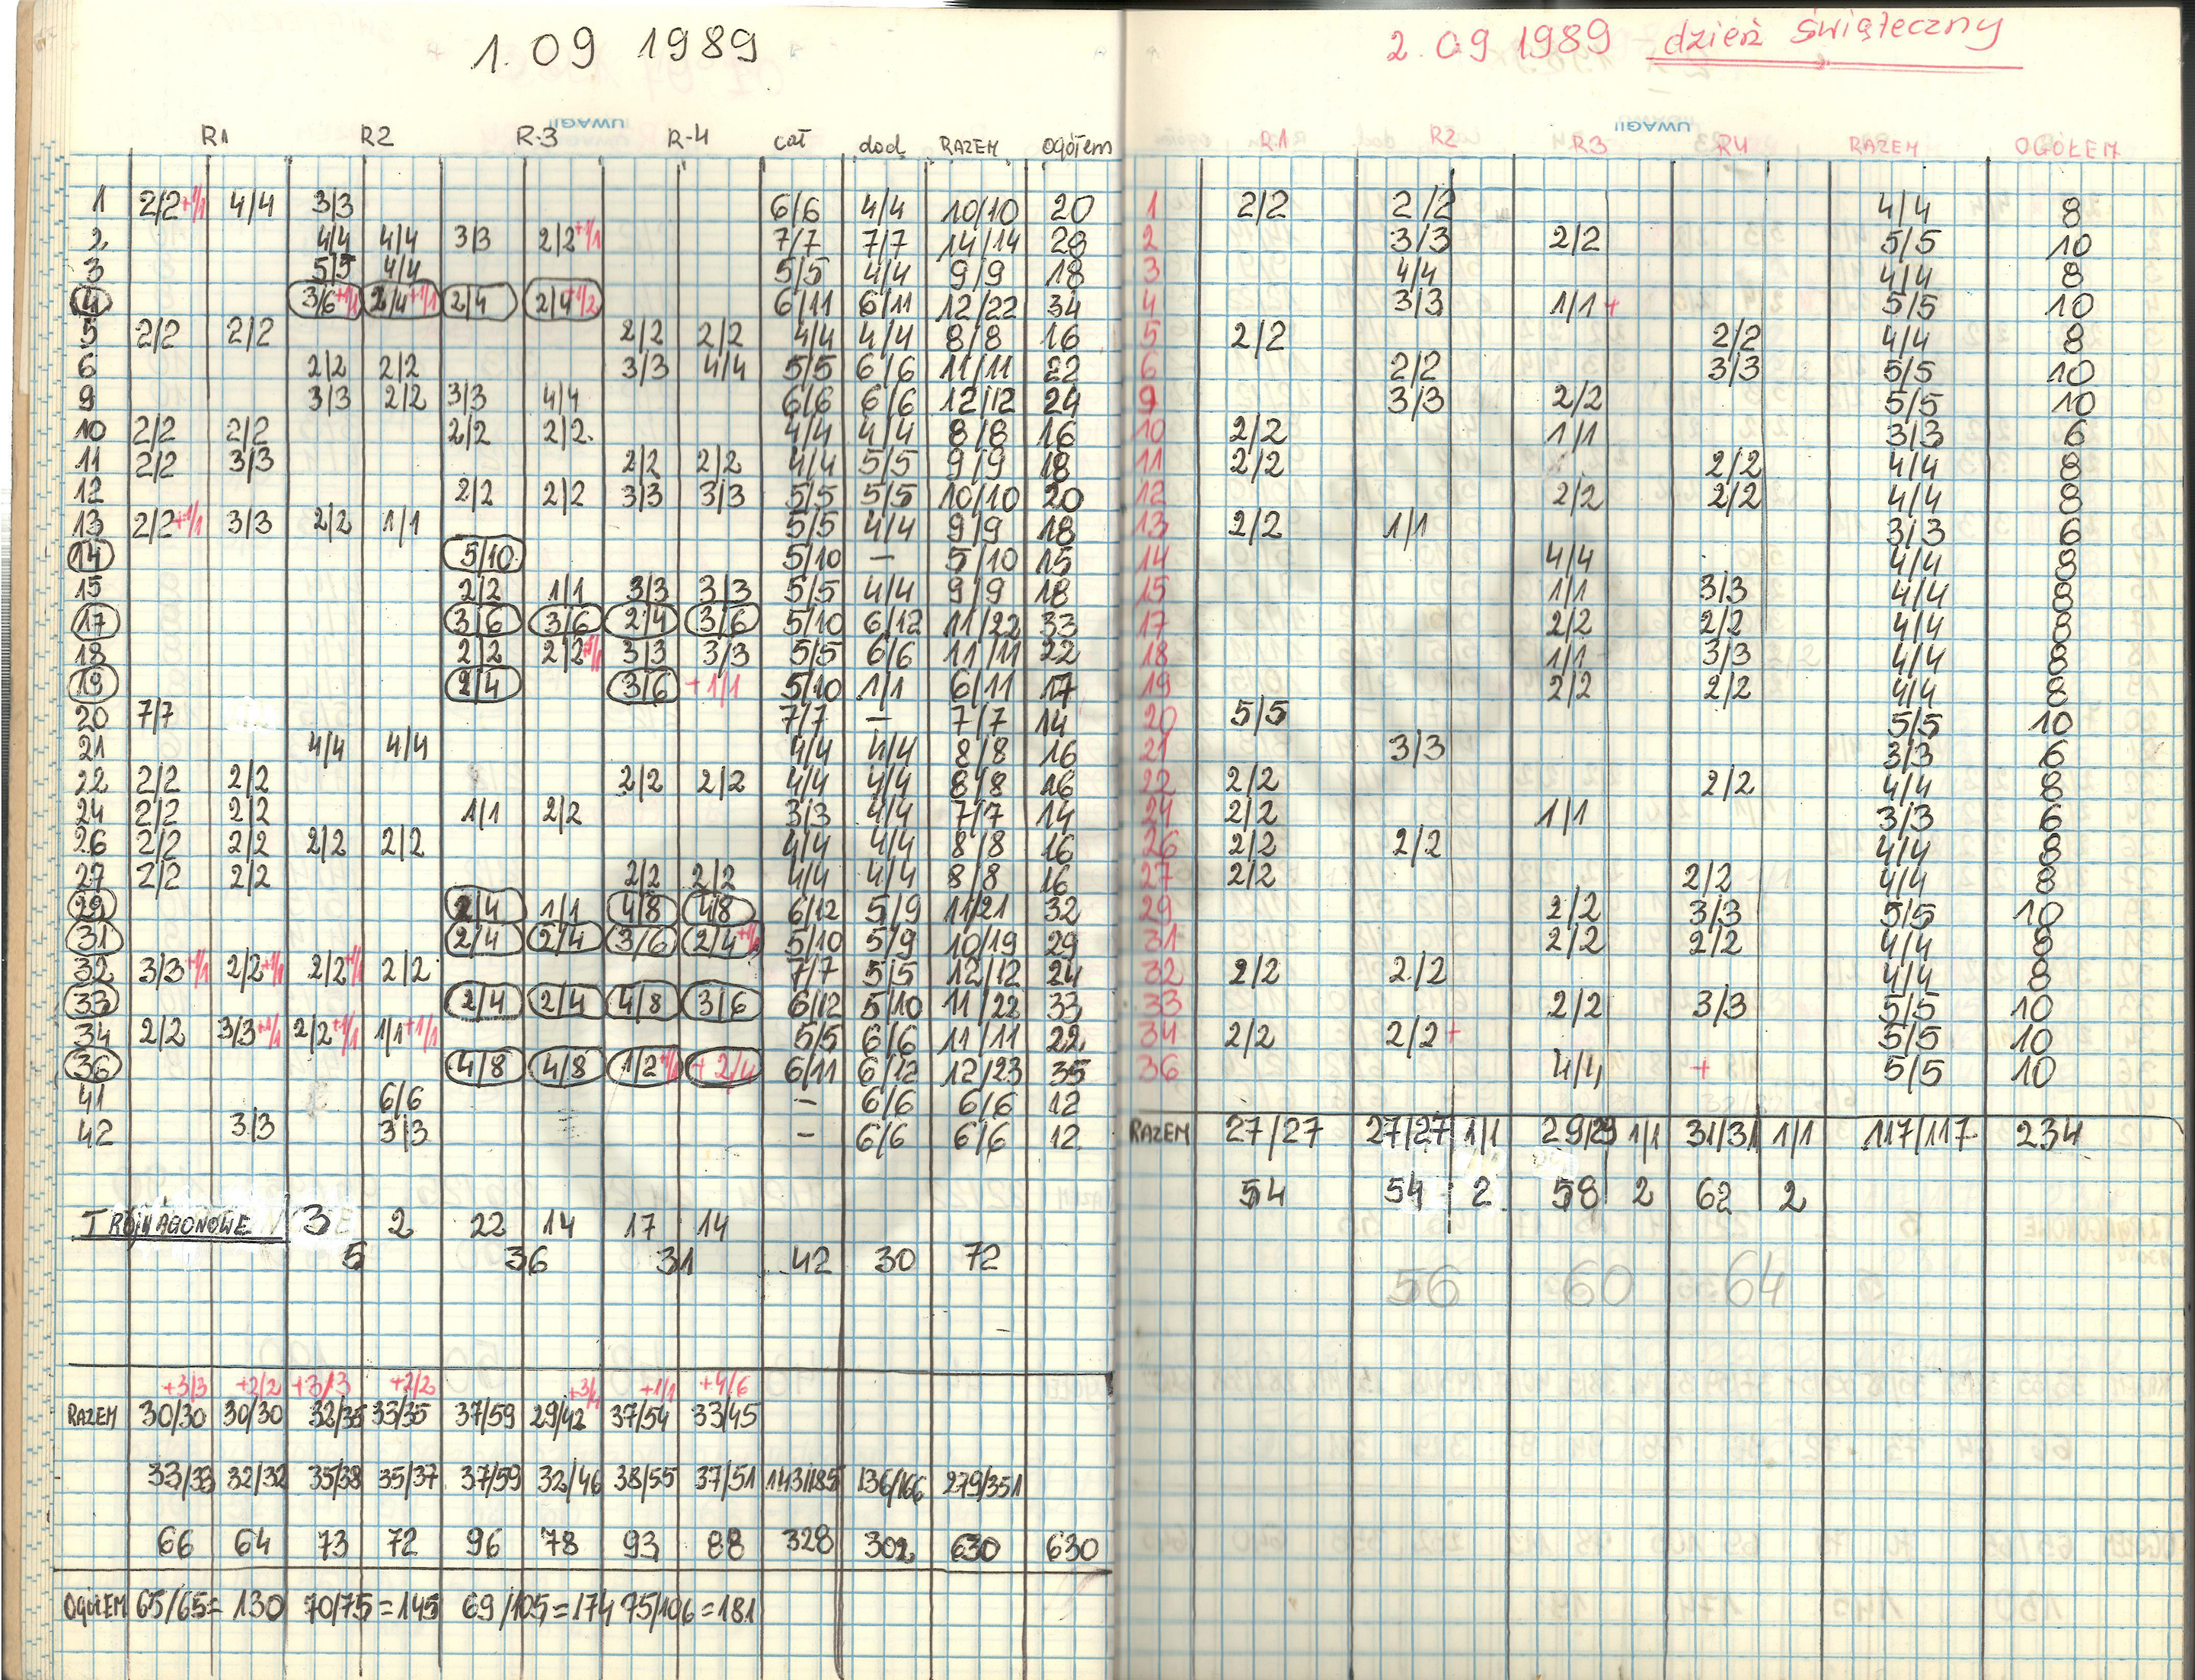 1.09 1989
UWAGI
R1 R2 R-3 R-4 cał dod RAZEM ogółem
1 2/2+1/1 4/4 3/3 6/6 4/4 10/10 20
2 4/4 4/4 3/3 2/2+1/1 7/7 7/7 14/14 28
3 5/5 4/4 5/5 4/4 9/9 18
4 3/6+1/1 2/4+1/1 2/4 2/4+1/2 6/11 6/11 12/22 34
5 2/2 2/2 2/2 2/2 4/4 4/4 8/8 16
6 2/2 2/2 3/3 4/4 5/5 6/6 11/11 22
9 3/3 2/2 3/3 4/4 6/6 6/6 12/12 24
10 2/2 2/2 2/2 2/2. 4/4 4/4 8/8 16
11 2/2 3/3 2/2 2/2 4/4 5/5 9/9 18
12 2/2 2/2 3/3 3/3 5/5 5/5 10/10 20
13 2/2+1/1 3/3 2/2 1/1 5/5 4/4 9/9 18
14 5/10. 5/10 — 5/10 15
15 2/2 1/1 3/3 3/3 5/5 4/4 9/9 18
17 3/6 3/6 2/4 3/6 5/10 6/12 11/22 33
18 2/2 2/2+1/1 3/3 3/3 5/5 6/6 11/11 22
19 2/4 3/6 +1/1 5/10 1/1 6/11 17
20 7/7 7/7 — 7/7 14
21 4/4 4/4 4/4 4/4 8/8 16
22 2/2 2/2 2/2 2/2 4/4 4/4 8/8 16
24 2/2 2/2 1/1 2/2 3/3 4/4 7/7 14
26 2/2 2/2 2/2 2/2 4/4 4/4 8/8 16
27 2/2 2/2 2/2 2/2 4/4 4/4 8/8 16
29 2/4 1/1 4/8 4/8 6/12 5/9 11/21 32
31 2/4 2/4 3/6 2/4 5/10 5/9 10/19 29
32 3/3+1/1 2/2+1/1 2/2+1/1 2/2 7/7 5/5 12/12 24
33 2/4 2/4 4/8 3/6 6/12 5/10 11/22 33
34 2/2 3/3+1/1 2/2+1/1 1/1+1/1 5/5 6/6 11/11 22
36 4/8 4/8 1/2 +2/4 6/11 6/12 12/23 35
41 6/6 - 6/6 6/6 12
42 3/3 3/3 - 6/6 6/6 12.
TRÓJWAGONOWE 3 2 22 14 17 14
5 36 31 42 30 72
+3/3 +2/2 +3/3 +2/2 +3/4 +1/1 +4/6
RAZEM 30/30 30/30 32/35 33/35 37/59 29/42 37/54 33/45
33/33 32/32 35/38 35/37 37/59 32/46 38/55 37/51 143/185 136/166 279/351
66 64 73 72 96 78 93 88 328 302 630 630
OGÓŁEM 65/65= 130 70/75=145 69/105=174 75/106=181
2.09 1989 dzień świąteczny
UWAGI
R1 R2 R3 R4 RAZEM OGÓŁEM
1 2/2 2/2 4/4 8
2 3/3 2/2 5/5 10
3 4/4 4/4 8
4 3/3 1/1+ 5/5 10
5 2/2 2/2 4/4 8
6 2/2 3/3 5/5 10
9 3/3 2/2 5/5 10
10 2/2 1/1 3/3 6
11 2/2 2/2 4/4 8
12 2/2 2/2 4/4 8
13 2/2 1/1 3/3 6
14 4/4 4/4 8
15 1/1 3/3 4/4 8
17 2/2 2/2 4/4 8
18 1/1 3/3 4/4 8
19 2/2 2/2 4/4 8
20 5/5 5/5 10
21 3/3 3/3 6
22 2/2 2/2 4/4 8
24 2/2 1/1 3/3 6
26 2/2 2/2 4/4 8
27 2/2 2/2 4/4 8
29 2/2 3/3 5/5 10
31 2/2 2/2 4/4 8
32 2/2 2/2 4/4 8
33 2/2 3/3 5/5 10
34 2/2 2/2+ 5/5 10
36 4/4 + 5/5 10
RAZEM 27/27 27/27 1/1 29/29 1/1 31/31 1/1 117/117 234
54 54 2 58 2 62 2
56 60 64